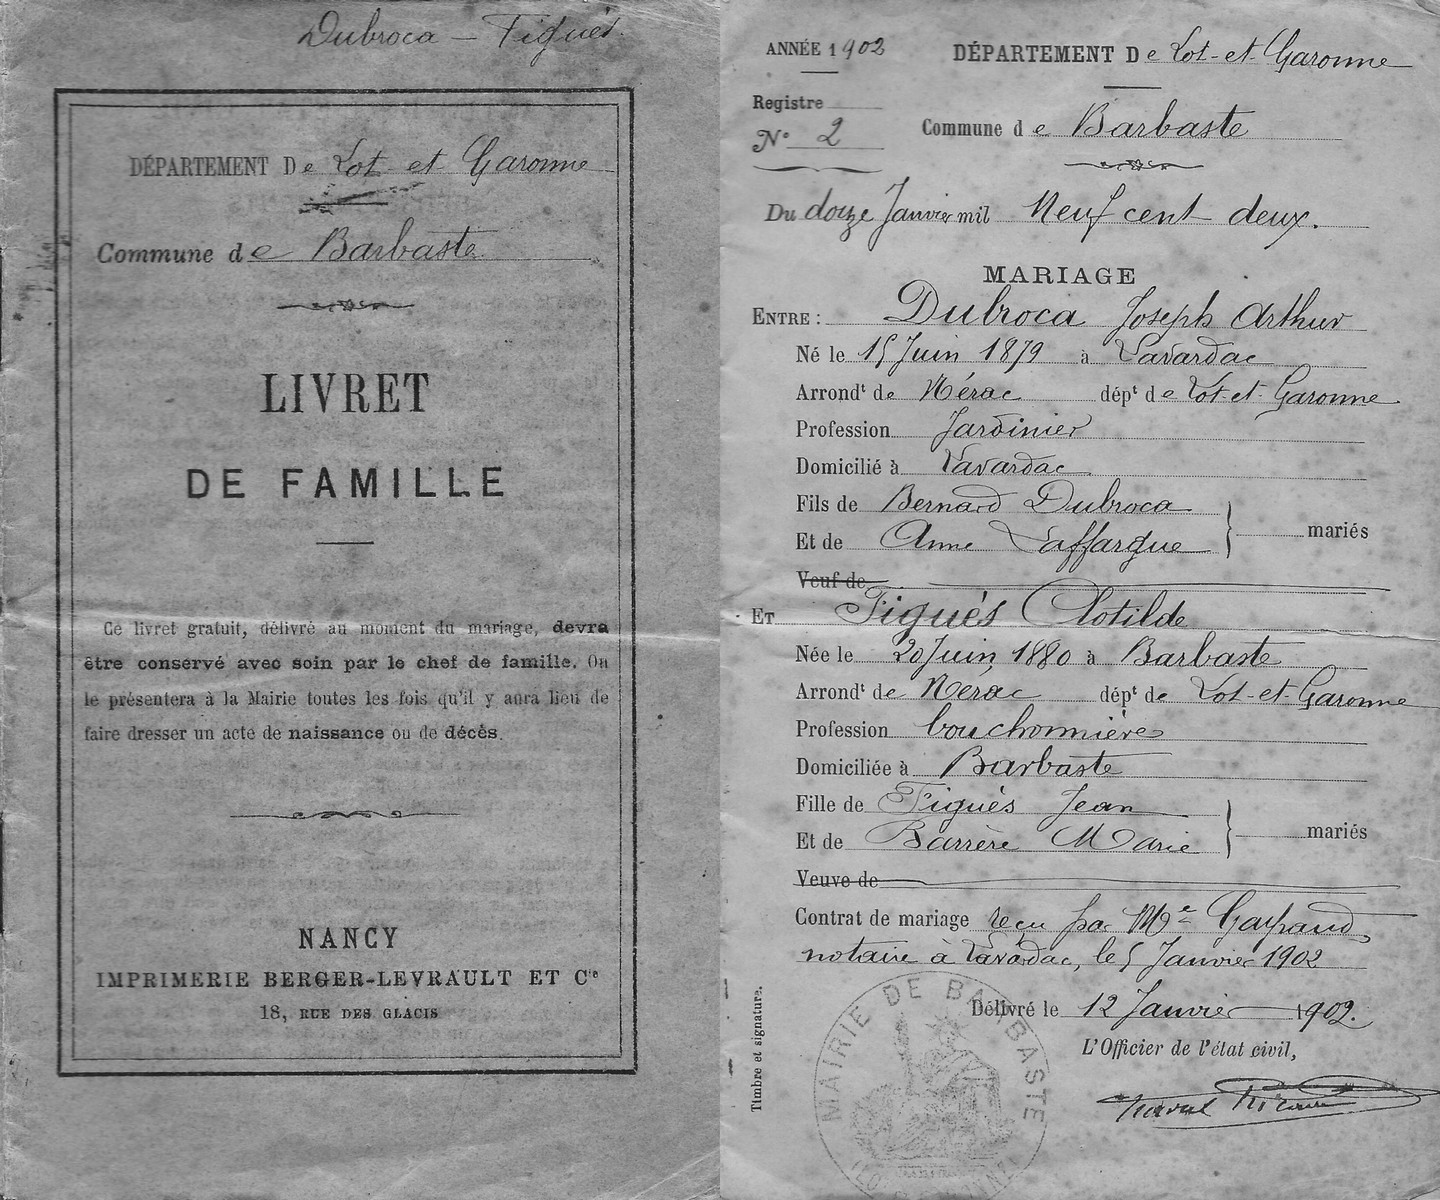 Dubroca - Tiguès.
DÉPARTEMENT De Lot et Garonne
Commune de Barbaste
LIVRET
DE FAMILLE
Ce livret gratuit, délivré au moment du mariage, devra
être conservé avec soin par le chef de famille. On
le présentera à la Mairie toutes les fois qu'il y aura lieu de
faire dresser un acte de naissance ou de décès.
NANCY
IMPRIMERIE BERGER-LEVRAULT ET Cie
18, RUE DES GLACIS
ANNÉE 1902
DÉPARTEMENT De Lot-et-Garonne
Registre
N° 2
Commune de Barbaste
Du douze Janvier mil Neuf cent deux.
MARIAGE
ENTRE : Dubroca Joseph Arthur
Né le 15 Juin 1879 à Lavardac
Arrondt de Nérac dépt de Lot-et-Garonne
Profession Jardinier
Domicilié à Lavardac
Fils de Bernard Dubroca
Et de Anne Laffargue mariés
Veuf de
ET Tiguès Clotilde
Née le 20 Juin 1880 à Barbaste
Arrondt de Nérac dépt de Lot-et-Garonne
Profession bouchonnière
Domiciliée à Barbaste
Fille de Tiguès Jean
Et de Barrère Marie mariés
Veuve de
Contrat de mariage reçu par Me
notaire à Lavardac, le 5 Janvier 1902
Délivré le 12 Janvier 1902.
L'Officier de l'état civil,
Timbre et signature.
MAIRIE DE BARBASTE